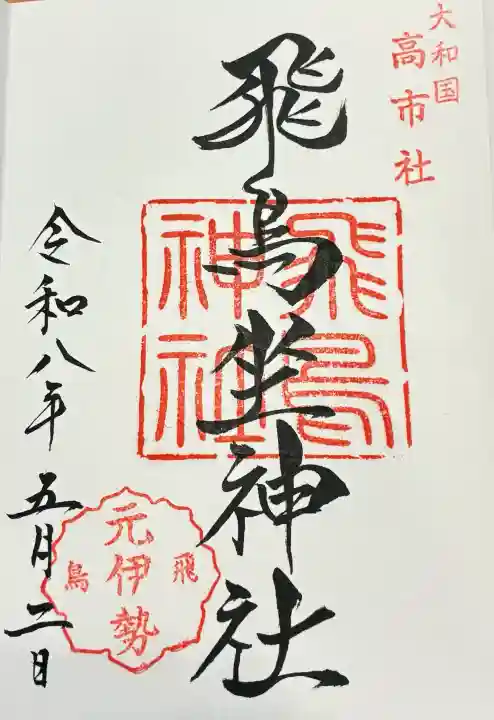 大和国
高市社
飛鳥坐神社
飛鳥
神社
令和八年 五月二日
飛鳥
元伊勢